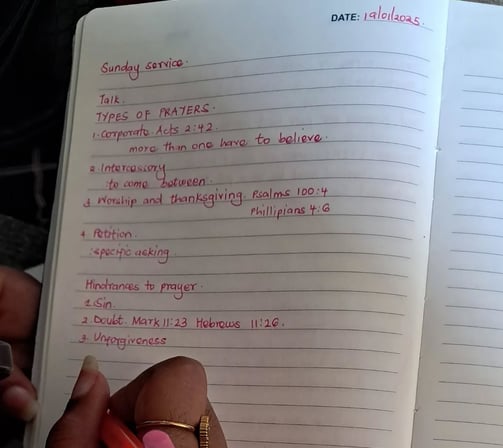 DATE: 19/01/2025.
Sunday service.
Talk.
TYPES OF PRAYERS.
1. Corporate. Acts 2:42.
more than one have to believe.
2. Intercessory
to come between.
3. Worship and thanksgiving. Psalms 100:4
Phillipians 4:6
4. Petition.
:specific asking.
Hindrances to prayer.
1. Sin.
2. Doubt. Mark 11:23 Hebrews 11:26.
3. Unforgiveness